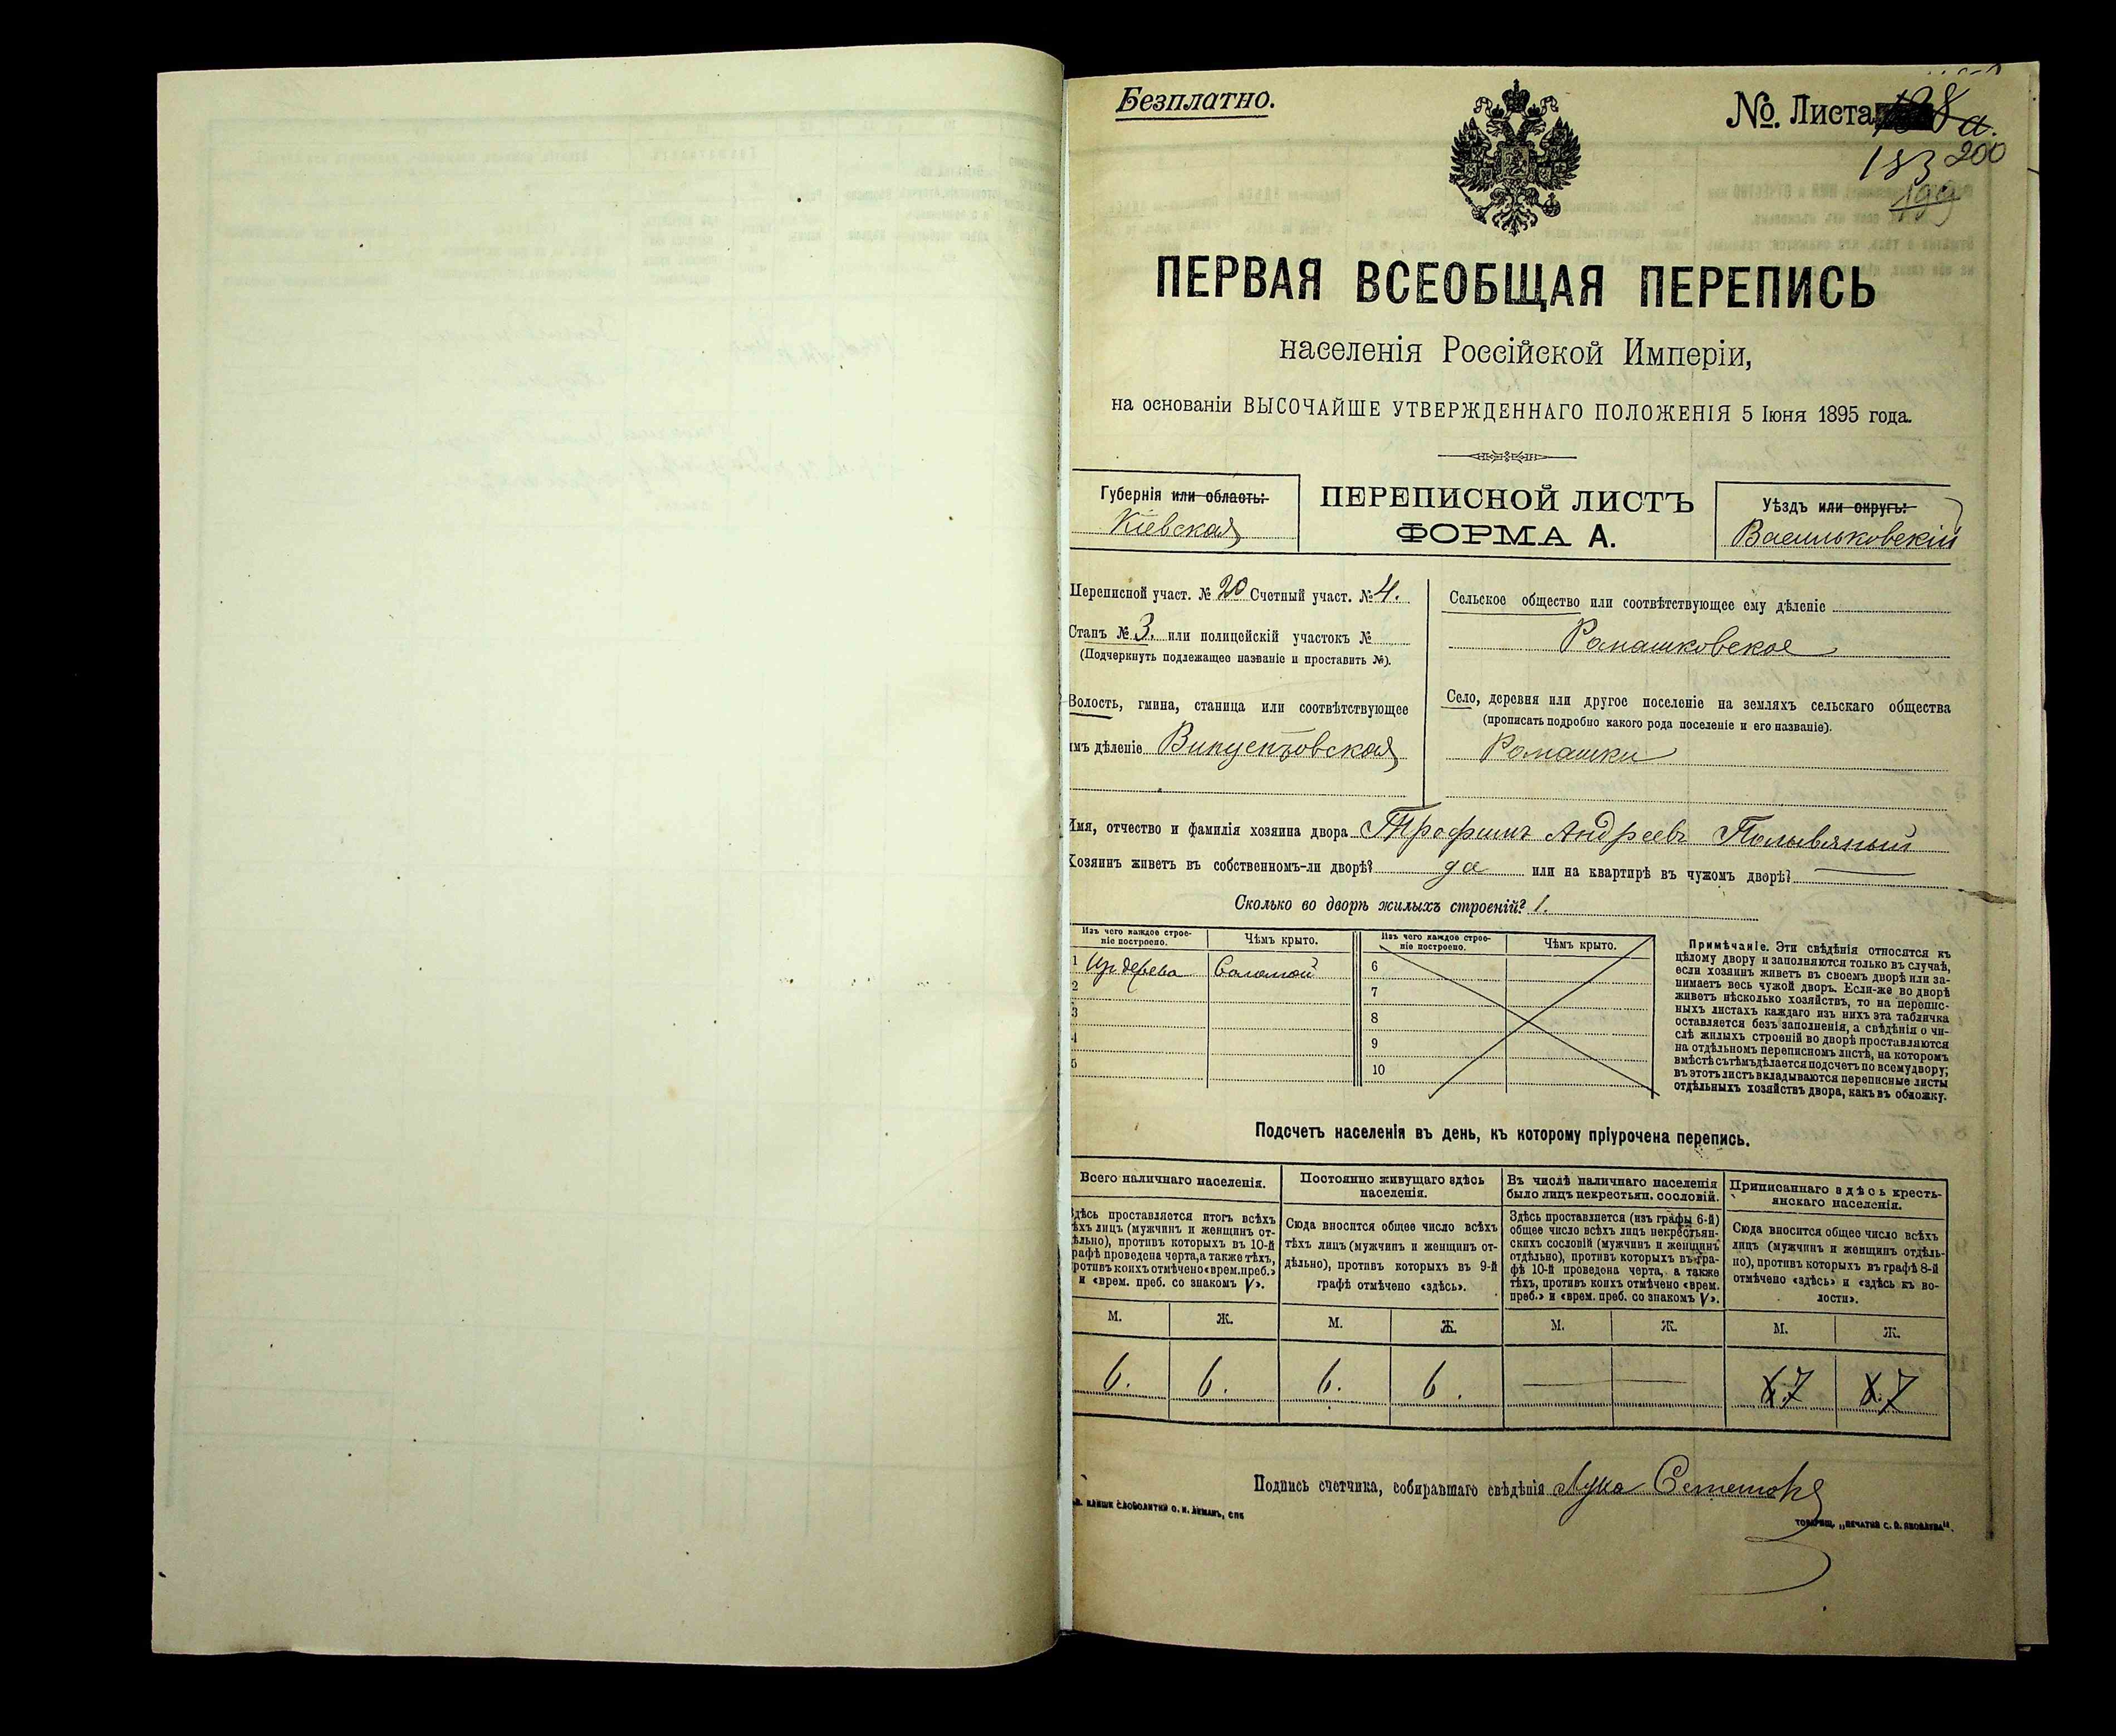 Безплатно.
№ Листа
183 200
199
ПЕРВАЯ ВСЕОБЩАЯ ПЕРЕПИСЬ
населенія Россійской Имперіи,
на основаніи ВЫСОЧАЙШЕ УТВЕРЖДЕННАГО ПОЛОЖЕНІЯ 5 Іюня 1895 года.
Губернія или область:
Кіевская
ПЕРЕПИСНОЙ ЛИСТЪ
ФОРМА А.
Уѣздъ или округъ:
Васильковскій
Переписной участ. № 20 Счетный участ. № 4.
Станъ № 3. или полицейскій участокъ №
(Подчеркнуть подлежащее названіе и проставить №).
Волость, гмина, станица или соотвѣтствующее
имъ дѣленіе
Сельское общество или соотвѣтствующее ему дѣленіе
Ромашковское
Село, деревня или другое поселеніе на земляхъ сельскаго общества
(прописать подробно какого рода поселеніе и его названіе).
Ромашки
Имя, отчество и фамилія хозяина двора Трофимъ Андреевъ Полывяный
Хозяинъ живетъ въ собственномъ-ли дворѣ? да или на квартирѣ въ чужомъ дворѣ?
Сколько во дворѣ жилыхъ строеній? 1.
Изъ чего каждое строе-
ніе построено.
Чѣмъ крыто.
Изъ чего каждое строе-
ніе построено.
Чѣмъ крыто.
1 Из дерева Соломой
2
3
4
5
6
7
8
9
10
Примѣчаніе. Эти свѣдѣнія относятся къ
цѣлому двору и заполняются только въ случаѣ,
если хозяинъ живетъ въ своемъ дворѣ или за-
нимаетъ весь чужой дворъ. Если-же во дворѣ
живетъ нѣсколько хозяйствъ, то на перепис-
ныхъ листахъ каждаго изъ нихъ эта табличка
оставляется безъ заполненія, а свѣдѣнія о чи-
слѣ жилыхъ строеній во дворѣ проставляются
на отдѣльномъ переписномъ листѣ, на которомъ
вмѣстѣ съ тѣмъ дѣлается подсчетъ по всему двору;
въ этотъ листъ вкладываются переписные листы
отдѣльныхъ хозяйствъ двора, какъ въ обложку.
Подсчетъ населенія въ день, къ которому пріурочена перепись.
Всего наличнаго населенія.
Здѣсь проставляется итогъ всѣхъ
тѣхъ лицъ (мужчинъ и женщинъ от-
дѣльно), противъ которыхъ въ 10-й
графѣ проведена черта, а также тѣхъ,
противъ коихъ отмѣчено «врем. преб.»
и «врем. преб. со знакомъ V».
Постоянно живущаго здѣсь
населенія.
Сюда вносится общее число всѣхъ
тѣхъ лицъ (мужчинъ и женщинъ от-
дѣльно), противъ которыхъ въ 9-й
графѣ отмѣчено «здѣсь».
Въ числѣ наличнаго населенія
было лицъ некрестьян. сословій.
Здѣсь проставляется (изъ графы 6-й)
общее число всѣхъ лицъ некрестьян-
скихъ сословій (мужчинъ и женщинъ
отдѣльно), противъ которыхъ въ гра-
фѣ 10-й проведена черта, а также
тѣхъ, противъ коихъ отмѣчено «врем.
преб.» и «врем. преб. со знакомъ V».
Приписаннаго здѣсь кресть-
янскаго населенія.
Сюда вносится общее число всѣхъ
лицъ (мужчинъ и женщинъ отдѣль-
но), противъ которыхъ въ графѣ 8-й
отмѣчено «здѣсь» и «здѣсь къ во-
лости».
М. Ж. М. Ж. М. Ж. М. Ж.
6. 6. 6. 6. 7 7
Подпись счетчика, собиравшаго свѣдѣнія Лука
ТОВАРИЩ. „ПЕЧАТНЯ С. П. ЯКОВЛЕВА".